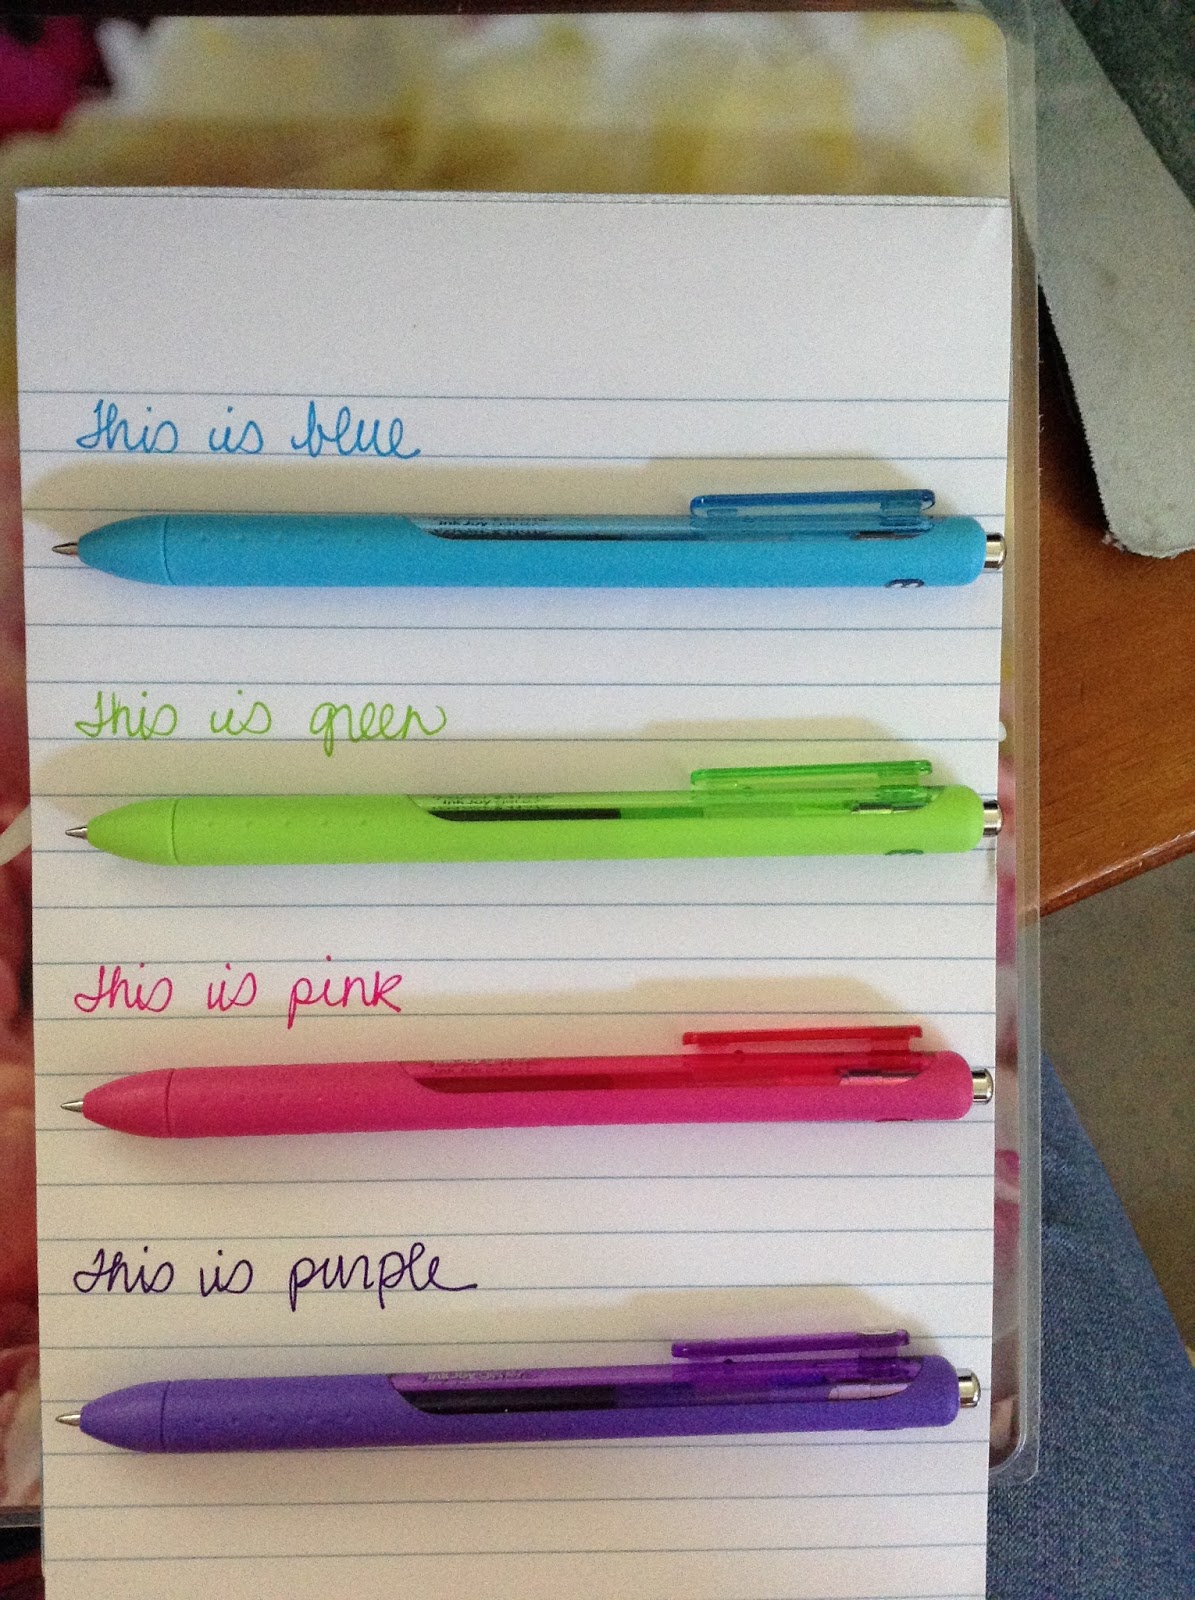 This is blue
InkJoy
This is green
InkJoy
This is pink
This is purple